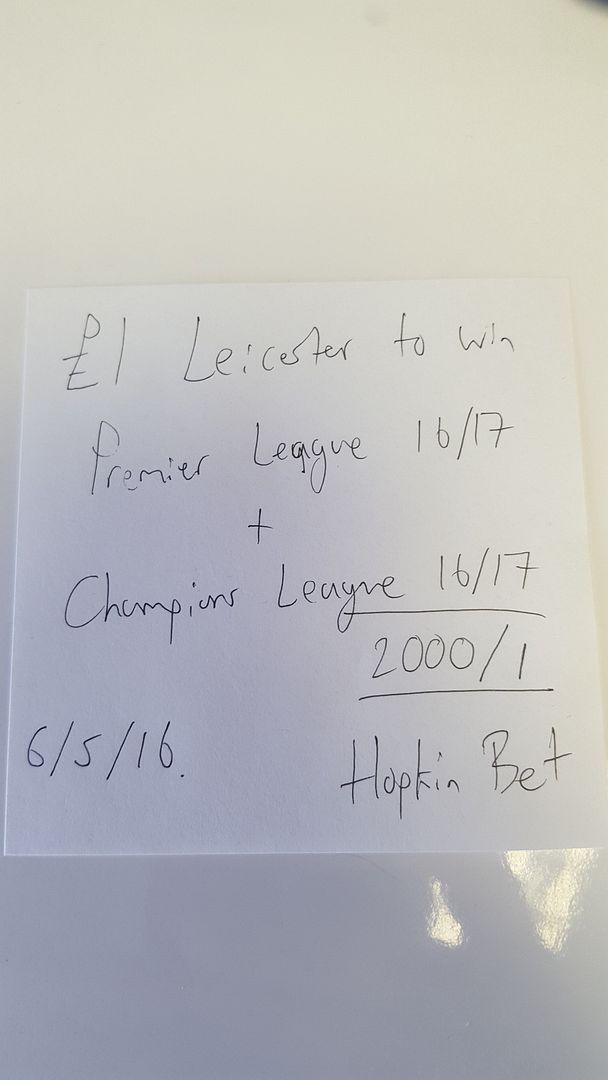 £1 Leicester to win
Premier League 16/17
+
Champions League 16/17
2000/1
6/5/16.
Hopkin Bet